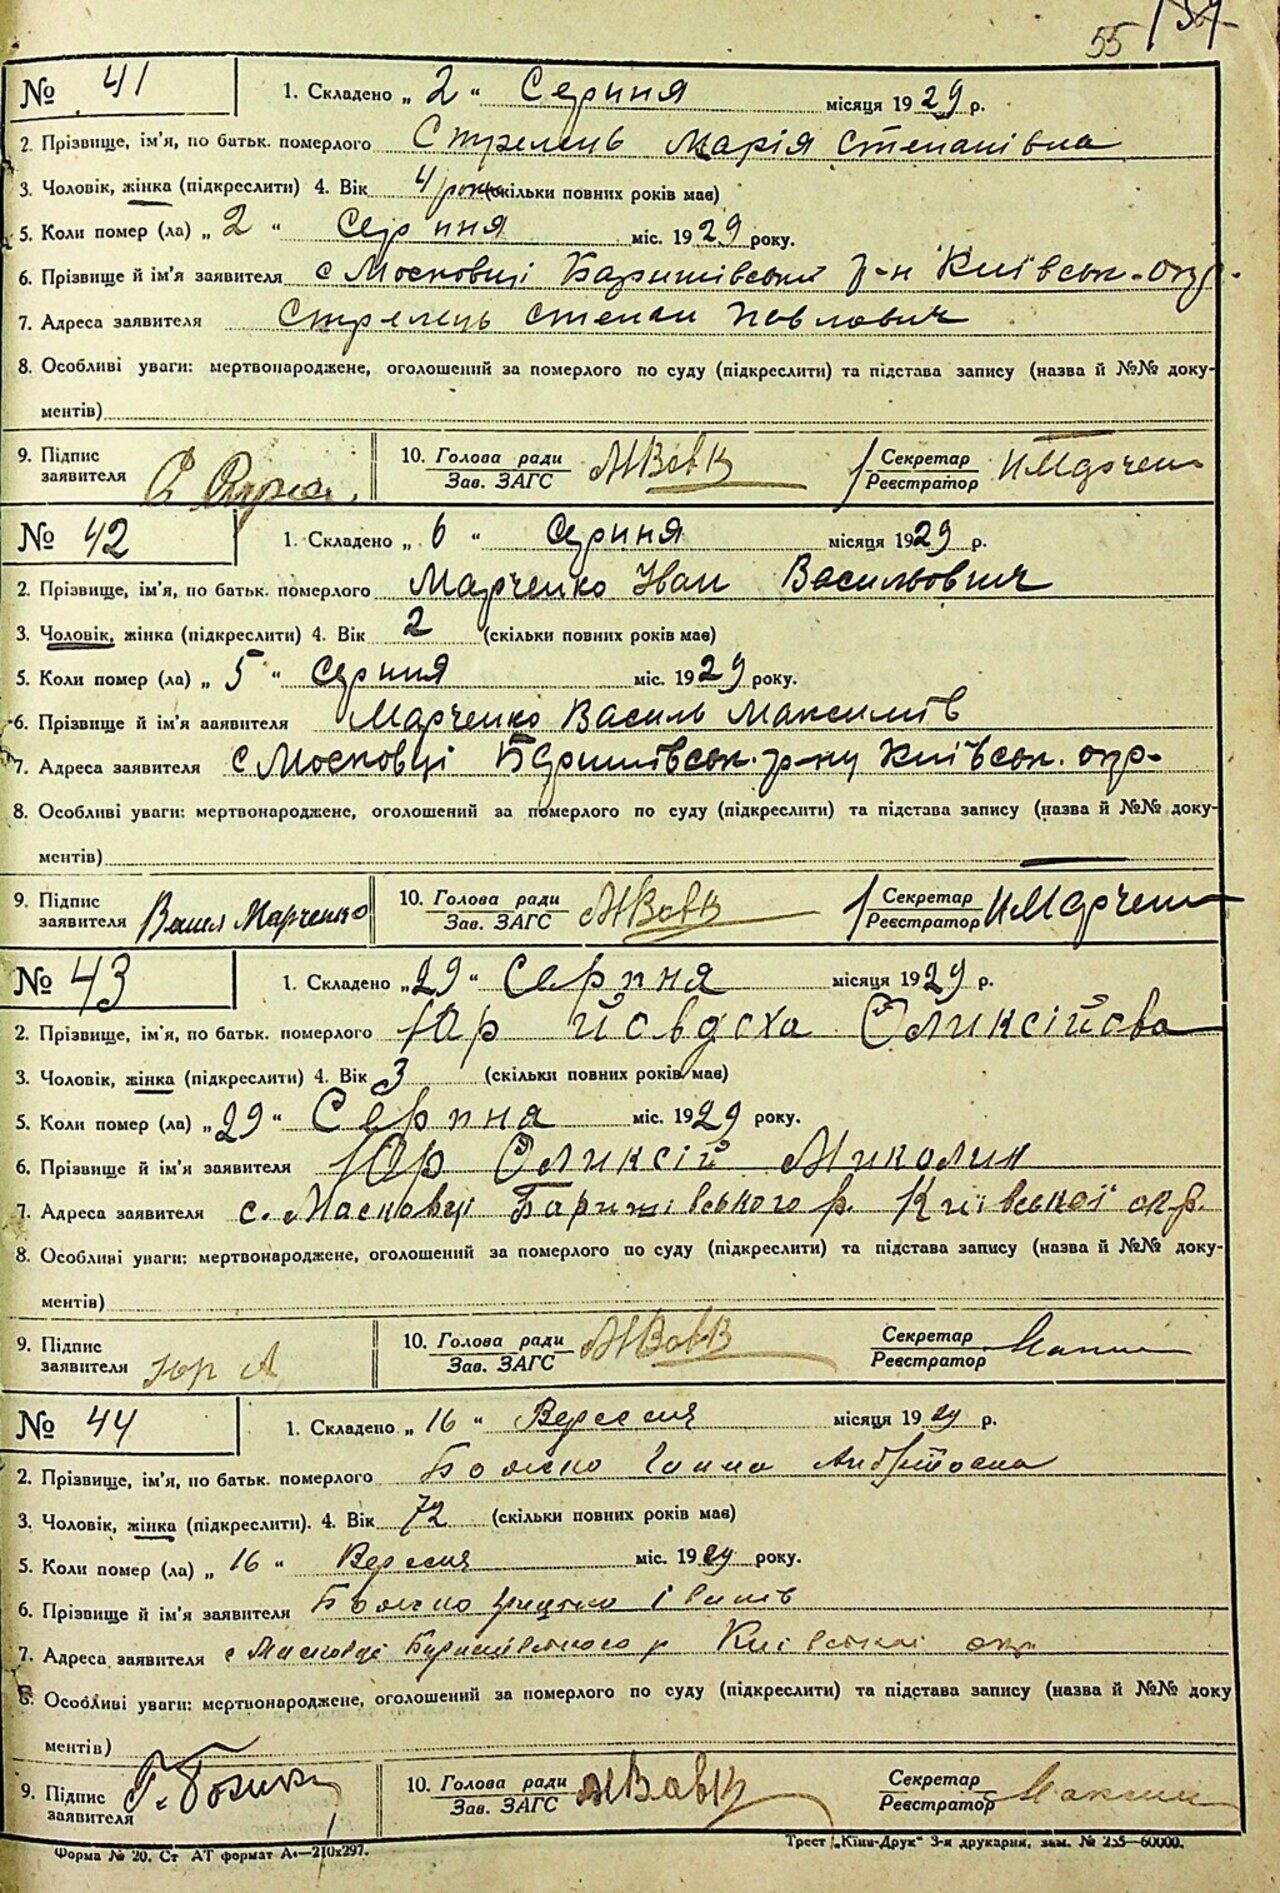 55 137
№ 41 1. Складено „ 2 “ Серпня місяця 1929 р.
2. Прізвище, ім'я, по батьк. померлого Стрелець Марія Степанівна
3. Чоловік, жінка (підкреслити) 4. Вік 4 роки (скільки повних років має)
5. Коли помер (ла) „ 2 “ Серпня міс. 1929 року.
6. Прізвище й ім'я заявителя с Московці Баришівський р-н Київськ. окр.
7. Адреса заявителя Стрелець Степан Павлович
8. Особливі уваги: мертвонароджене, оголошений за померлого по суду (підкреслити) та підстава запису (назва й №№ доку-
ментів)
9. Підпис заявителя
10. Голова ради Зав. ЗАГС МВовк
Секретар Реєстратор ИМарчен
№ 42 1. Складено „ 6 “ Серпня місяця 1929 р.
2. Прізвище, ім'я, по батьк. померлого Марченко Іван Васильович
3. Чоловік, жінка (підкреслити) 4. Вік 2 (скільки повних років має)
5. Коли помер (ла) „ 5 “ Серпня міс. 1929 року.
6. Прізвище й ім'я заявителя Марченко Василь Максимів
7. Адреса заявителя с Московці Баришівськ. р-ну Київськ. окр.
8. Особливі уваги: мертвонароджене, оголошений за померлого по суду (підкреслити) та підстава запису (назва й №№ доку-
ментів)
9. Підпис заявителя Васил Марченко
10. Голова ради Зав. ЗАГС МВовк
Секретар Реєстратор ИМарчен
№ 43 1. Складено „ 29 “ Серпня місяця 1929 р.
2. Прізвище, ім'я, по батьк. померлого Юр Йовдоха Оликсійова
3. Чоловік, жінка (підкреслити) 4. Вік 3 (скільки повних років має)
5. Коли помер (ла) „ 29 “ Серпня міс. 1929 року.
6. Прізвище й ім'я заявителя Юр Оликсій Миколик
7. Адреса заявителя с. Масковці Баришівського р. Київської окр.
8. Особливі уваги: мертвонароджене, оголошений за померлого по суду (підкреслити) та підстава запису (назва й №№ доку-
ментів)
9. Підпис заявителя Юр А
10. Голова ради Зав. ЗАГС МВовк
Секретар Реєстратор
№ 44 1. Складено „ 16 “ Вересня місяця 1929 р.
2. Прізвище, ім'я, по батьк. померлого Божко Ганна
3. Чоловік, жінка (підкреслити). 4. Вік 72 (скільки повних років має)
5. Коли помер (ла) „ 16 “ Вересня міс. 1929 року.
6. Прізвище й ім'я заявителя Божко Грицько Іванів
7. Адреса заявителя с Масковці Баришівського р Київської окр
8. Особливі уваги: мертвонароджене, оголошений за померлого по суду (підкреслити) та підстава запису (назва й №№ доку
ментів)
9. Підпис заявителя Г. Божко
10. Голова ради Зав. ЗАГС МВовк
Секретар Реєстратор
Форма № 20. Ст АТ формат А4—210х297.
Трест „Київ-Друк“ 3-я друкарня, зам. № 255—60000.